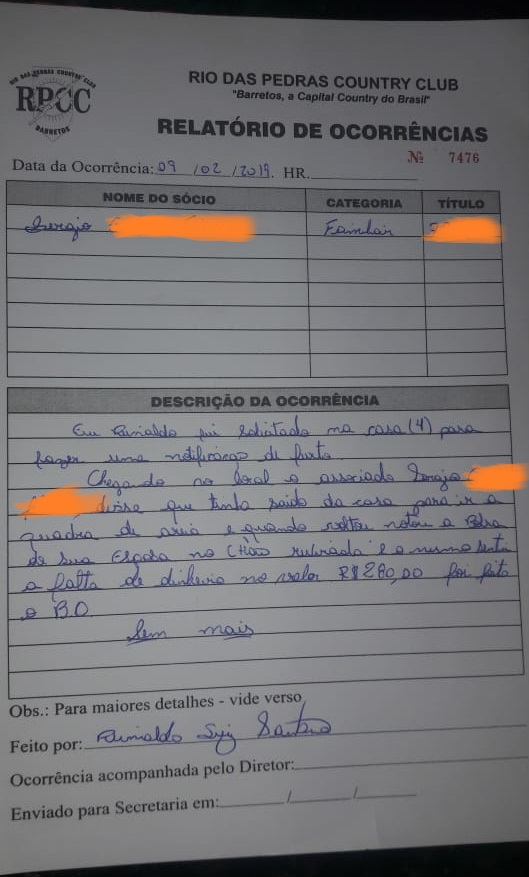 RIO DAS PEDRAS COUNTRY CLUB
RPCC
BARRETOS
RIO DAS PEDRAS COUNTRY CLUB
"Barretos, a Capital Country do Brasil"
RELATÓRIO DE OCORRÊNCIAS
Nº 7476
Data da Ocorrência: 09 / 02 / 2019. HR.
NOME DO SÓCIO CATEGORIA TÍTULO
Sergio Familar
DESCRIÇÃO DA OCORRÊNCIA
Eu fui solicitado na casa (4) para
fazer uma notificação de furto.
Chegando no local o associado Sergio
disse que tinha saido da casa para ir a
quadra de aria e quando voltou notou a Bolsa
de sua Esposa no CHÃO e o mesmo sentiu
a falta de dinheiro no valor R$280,00 foi feito
o B.O.
Sem mais
Obs.: Para maiores detalhes - vide verso
Feito por:
Ocorrência acompanhada pelo Diretor:
Enviado para Secretaria em: / /